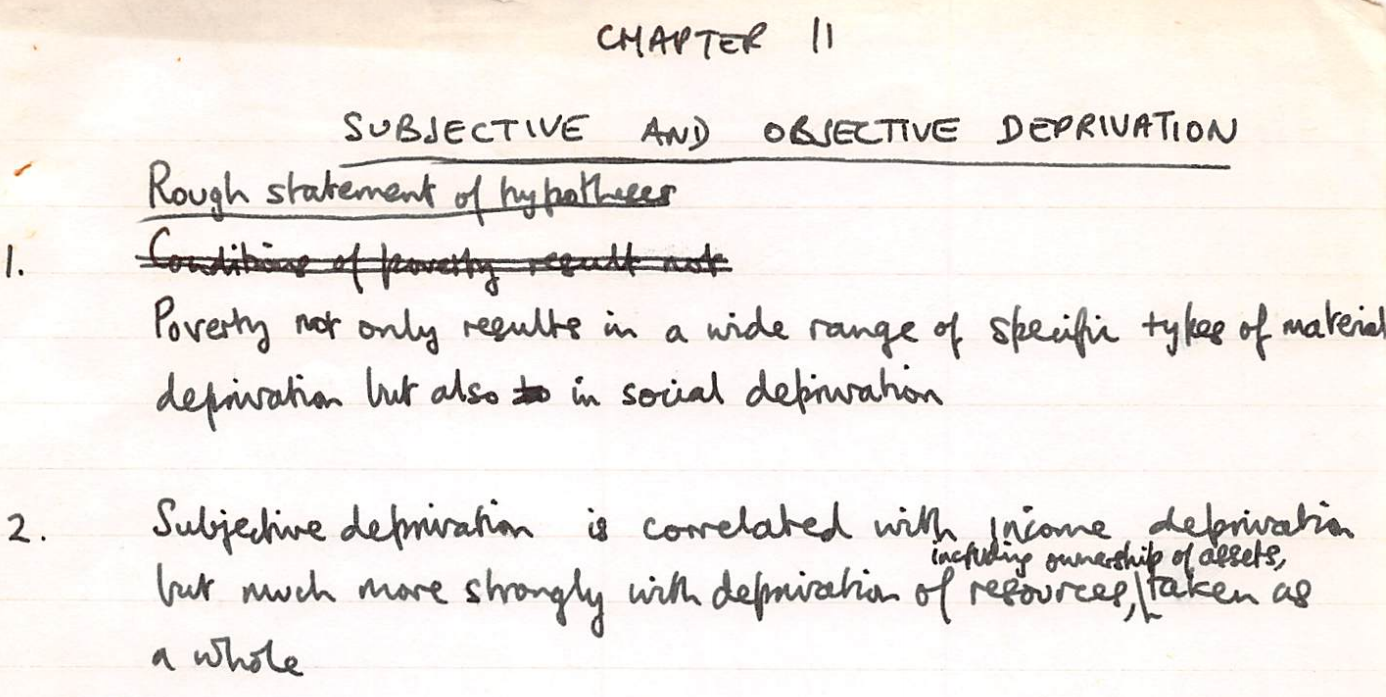 CHAPTER 11
SUBJECTIVE AND OBJECTIVE DEPRIVATION
Rough statement of hypotheses
1. Conditions of poverty result not
Poverty not only results in a wide range of specific types of material
deprivation but also to in social deprivation
2. Subjective deprivation is correlated with income deprivation
including ownership of assets,
but much more strongly with deprivation of resources, taken as
a whole